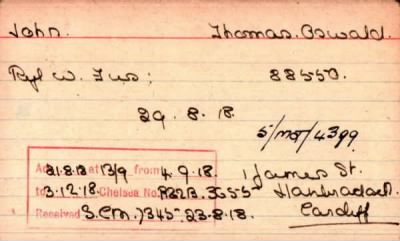 John. Thomas. Oswald.
Ryl W. Fus: 88550.
29. 8. 18.
5/MJ/4399
A 31.8.18 at 13/9 from 4.9.18. 1 James St.
to 3.12.18. Chelsea No. Llanbradach.
Received 3.C.M. 7345-23.8.18. Cardiff